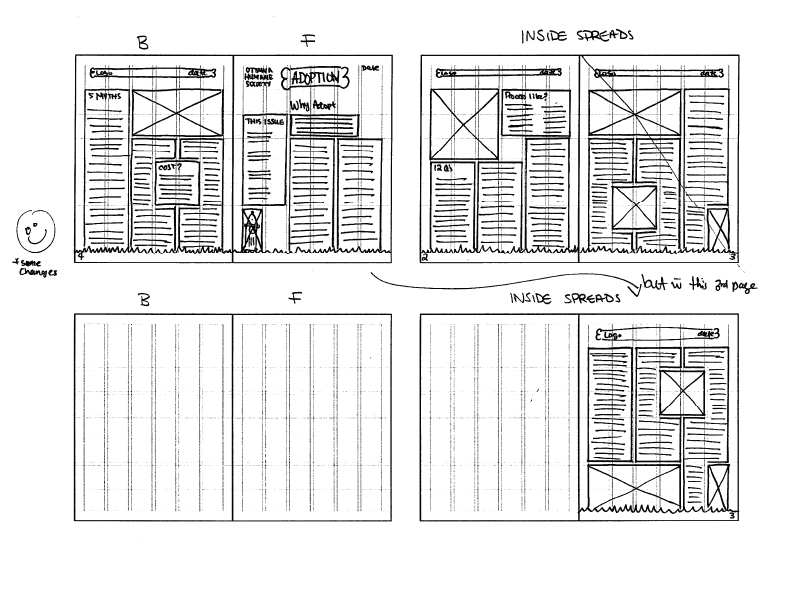 B
F
INSIDE SPREADS
Logo
date
5 MYTHS
COST?
4
OTTAWA
HUMANE
SOCIETY
ADOPTION
Date
Why Adopt
THIS ISSUE
Logo
date
Process like?
12 Q's
2
Logo
date
3
* some
changes
but w this 3rd page
B
F
INSIDE SPREADS
Logo
date
3